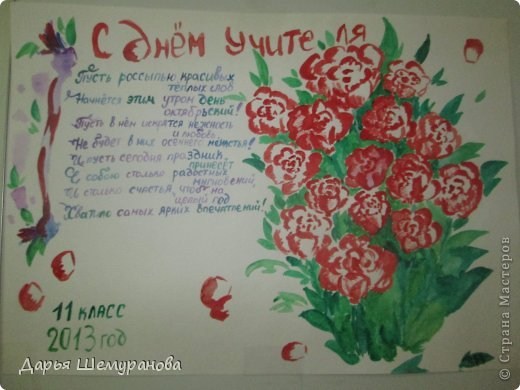 С Днём учителя
Пусть россыпью красивых
тёплых слов
Начнётся этим утром день
октябрьский!
Пусть в нём искрятся нежность
и любовь,
Не будет в них осеннего ненастья!
И пусть сегодня праздник
принесёт
С собою столько радостных
мгновений,
И столько счастья, чтоб на
целый год
Хватило самых ярких впечатлений!
11 класс
2013 год
Дарья Шемуранова
© Страна Мастеров